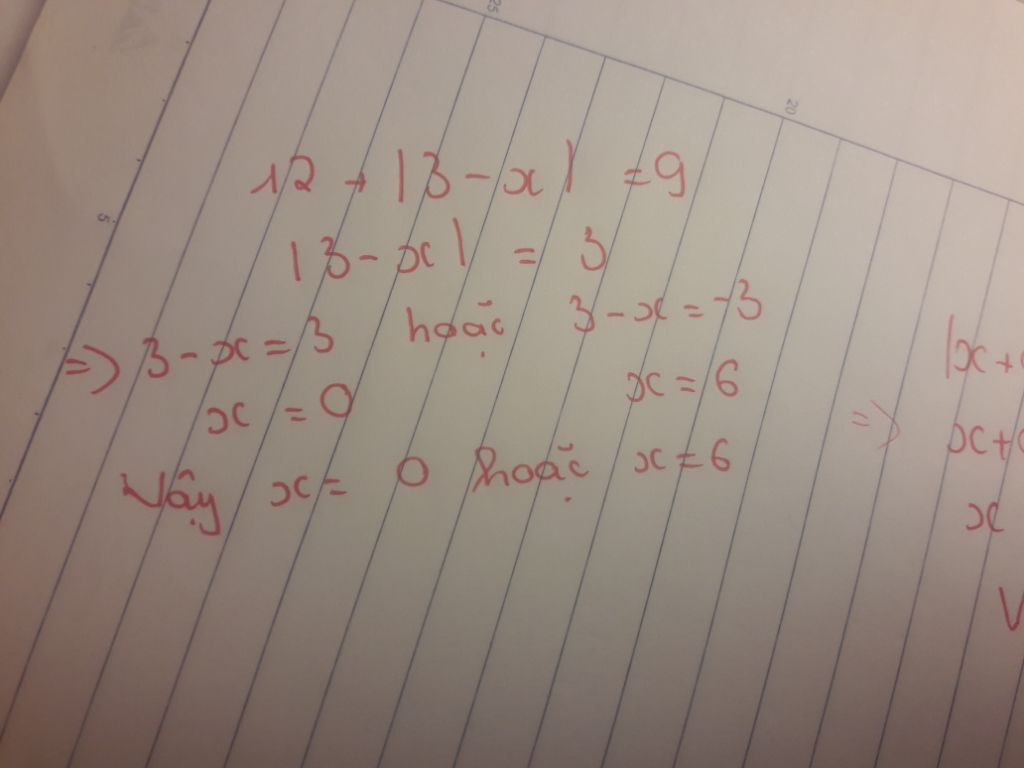 25
20
5
12 + |3 - x| = 9
|3 - x| = 3
=> 3 - x = 3 hoặc 3 - x = -3
x = 0 x = 6
Vậy x = 0 hoặc x = 6
|x +
=> x +
x
V